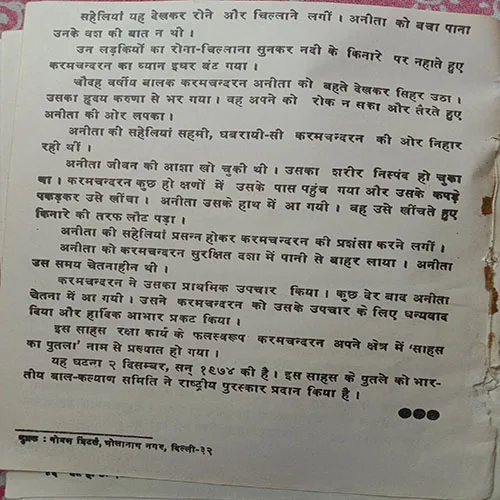 सहेलियां यह देखकर रोने और चिल्लाने लगीं । अनीता को बचा पाना
उनके वश की बात न थी ।
उन लड़कियों का रोना-चिल्लाना सुनकर नदी के किनारे पर नहाते हुए
करमचन्दरन का ध्यान इधर बंट गया ।
चौदह वर्षीय बालक करमचन्दरन अनीता को बहते देखकर सिहर उठा ।
उसका हृदय करुणा से भर गया । वह अपने को रोक न सका और तैरते हुए
अनीता की ओर लपका ।
अनीता की सहेलियां सहमी, घबरायी-सी करमचन्दरन की ओर निहार
रही थीं ।
अनीता जीवन की आशा खो चुकी थी । उसका शरीर निस्पंद हो चुका
था । करमचन्दरन कुछ ही क्षणों में उसके पास पहुंच गया और उसके कपड़े
पकड़कर उसे खींचा । अनीता उसके हाथ में आ गयी । वह उसे खींचते हुए
किनारे की तरफ लौट पड़ा ।
अनीता की सहेलियां प्रसन्न होकर करमचन्दरन की प्रशंसा करने लगीं ।
अनीता को करमचन्दरन सुरक्षित दशा में पानी से बाहर लाया । अनीता
उस समय चेतनाहीन थी ।
करमचन्दरन ने उसका प्राथमिक उपचार किया । कुछ देर बाद अनीता
चेतना में आ गयी । उसने करमचन्दरन को उसके उपचार के लिए धन्यवाद
दिया और हार्दिक आभार प्रकट किया ।
इस साहस रक्षा कार्य के फलस्वरूप करमचन्दरन अपने क्षेत्र में 'साहस
का पुतला' नाम से प्रख्यात हो गया ।
यह घटना २ दिसम्बर, सन् १९७४ की है । इस साहस के पुतले को भार-
तीय बाल-कल्याण समिति ने राष्ट्रीय पुरस्कार प्रदान किया है ।
मुद्रक : प्रिंटर्स, भोलानाथ नगर, दिल्ली-३२